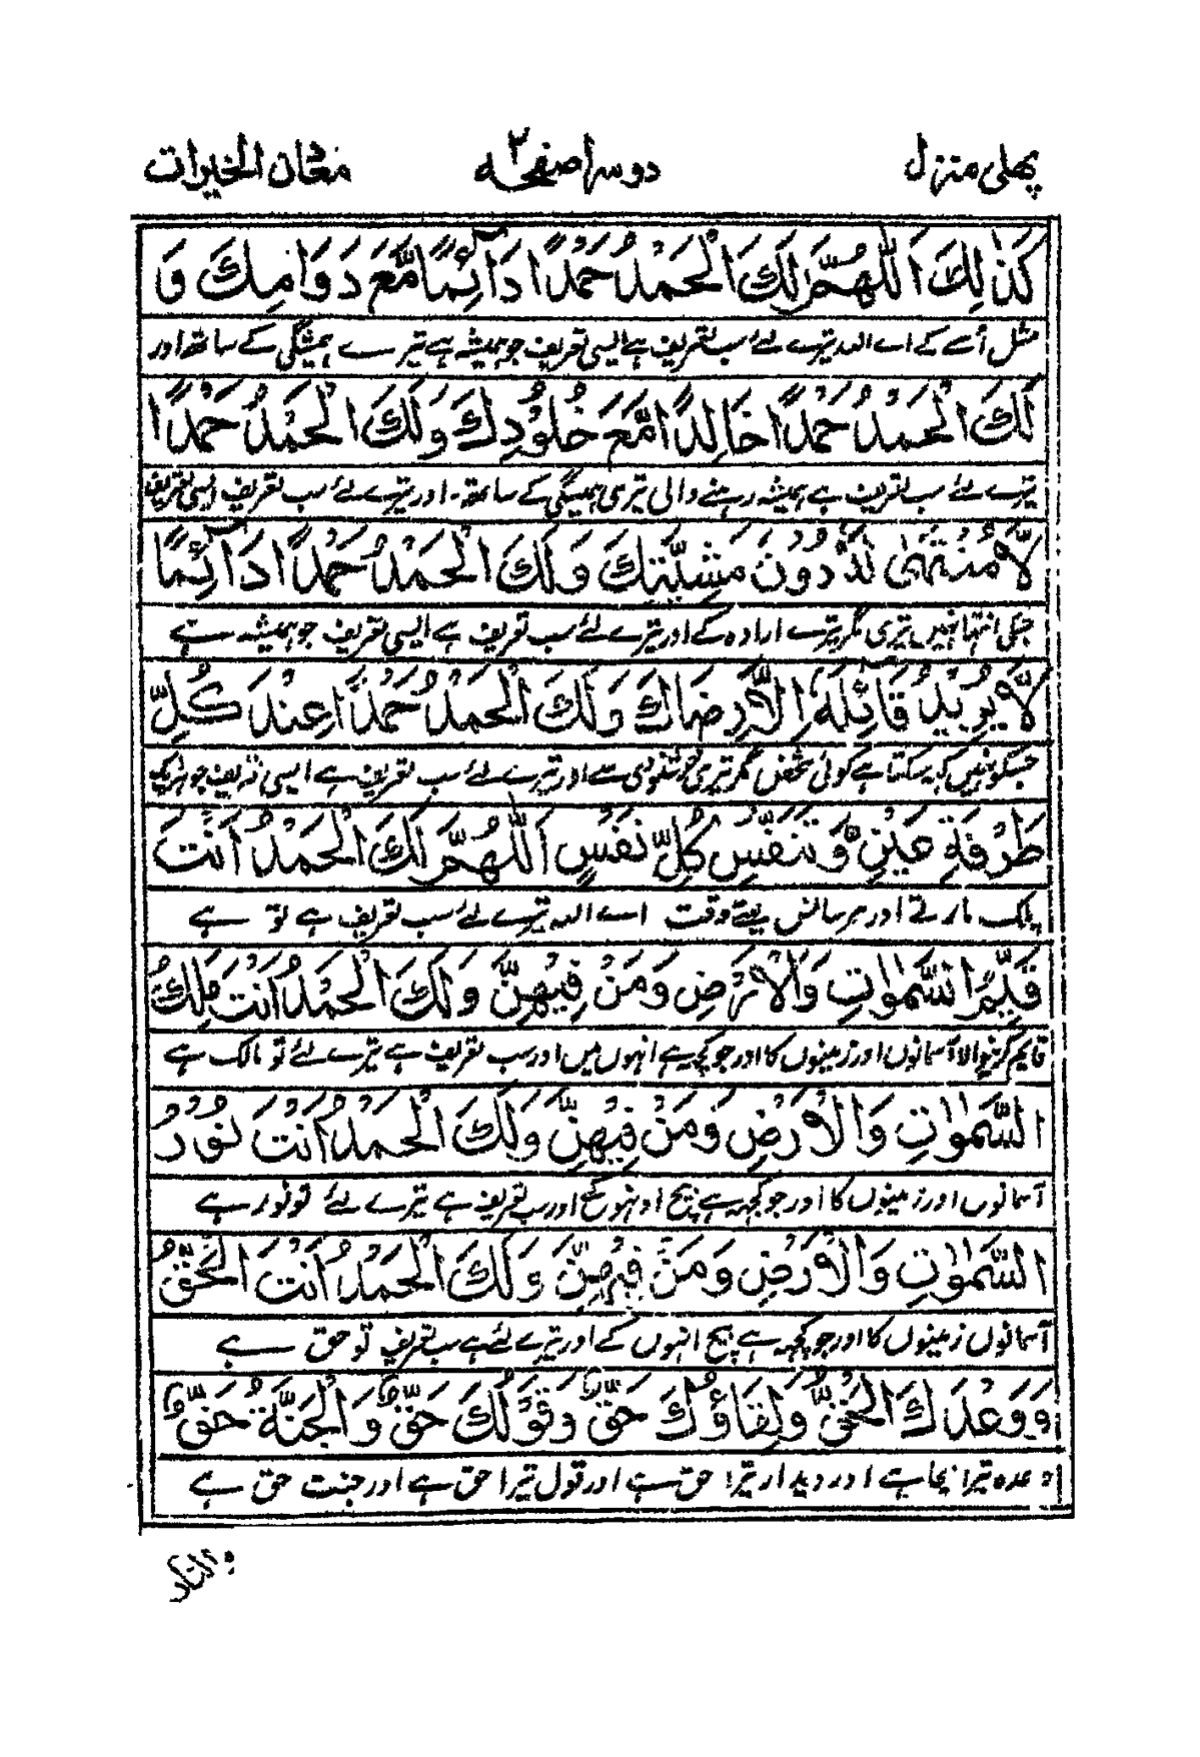 پهلی منزل دوسرا صفحه ۲ مغان الخیرات
كَذٰلِكَ اَللّٰهُمَّ لَكَ الْحَمْدُ حَمْدًا دَآئِمًا مَّعَ دَوَامِكَ وَ
مثل اُسے کے اے اللہ تیرے لئے سب تعریف ہے ایسی تعریف جو ہمیشہ ہے تیرے ہمیشگی کے ساتھ اور
لَكَ الْحَمْدُ حَمْدًا خَالِدًا مَّعَ خُلُوْدِكَ وَلَكَ الْحَمْدُ حَمْدًا
تیرے لئے سب تعریف ہے ہمیشہ رہنے والی تیری ہمیشگی کے ساتھ۔ اور تیرے لئے سب تعریف ایسی تعریف
لَّا مُنْتَهٰى لَهٗ دُوْنَ مَشِيَّتِكَ وَلَكَ الْحَمْدُ حَمْدًا دَآئِمًا
جسکی انتہا نہیں تیری مگر تیرے ارادہ کے اور تیرے لئے سب تعریف ہے ایسی تعریف جو ہمیشہ ہے
لَّا يُرِيْدُ قَآئِلُهٗ اِلَّا رِضَاكَ وَلَكَ الْحَمْدُ حَمْدًا عِنْدَ كُلِّ
جسکو نہیں کہہ سکتا ہے کوئی شخص مگر تیری خوشنودی سے اور تیرے لئے سب تعریف ہے ایسی تعریف جو ہر ایک
طَرْفَةِ عَيْنٍ وَّتَنَفُّسِ كُلِّ نَفْسٍ اَللّٰهُمَّ لَكَ الْحَمْدُ اَنْتَ
پلک مارتے اور ہر سانس لیتے وقت اے اللہ تیرے لئے سب تعریف ہے تو ہے
قَيِّمُ السَّمٰوٰتِ وَالْاَرْضِ وَمَنْ فِيْهِنَّ وَلَكَ الْحَمْدُ اَنْتَ مَلِكُ
قایم کرنیوالا آسمانوں اور زمینوں کا اور جو کچھ ہے انہوں میں اور سب تعریف ہے تیرے لئے تو مالک ہے
السَّمٰوٰتِ وَالْاَرْضِ وَمَنْ فِيْهِنَّ وَلَكَ الْحَمْدُ اَنْتَ نُوْرُ
آسمانوں اور زمینوں کا اور جو کچھ ہے بیچ اونہو کے اور سب تعریف ہے تیرے لئے تو نور ہے
السَّمٰوٰتِ وَالْاَرْضِ وَمَنْ فِيْهِنَّ وَلَكَ الْحَمْدُ اَنْتَ الْحَقُّ
آسمانوں زمینوں کا اور جو کچھ ہے بیچ انہوں کے اور تیرے لئے ہے سب تعریف تو حق ہے
وَوَعْدُكَ الْحَقُّ وَلِقَاؤُكَ حَقٌّ وَقَوْلُكَ حَقٌّ وَالْجَنَّةُ حَقٌّ
وعدہ تیرا سچا ہے اور دیدار تیرا حق ہے اور قول تیرا حق ہے اور جنت حق ہے
والنار